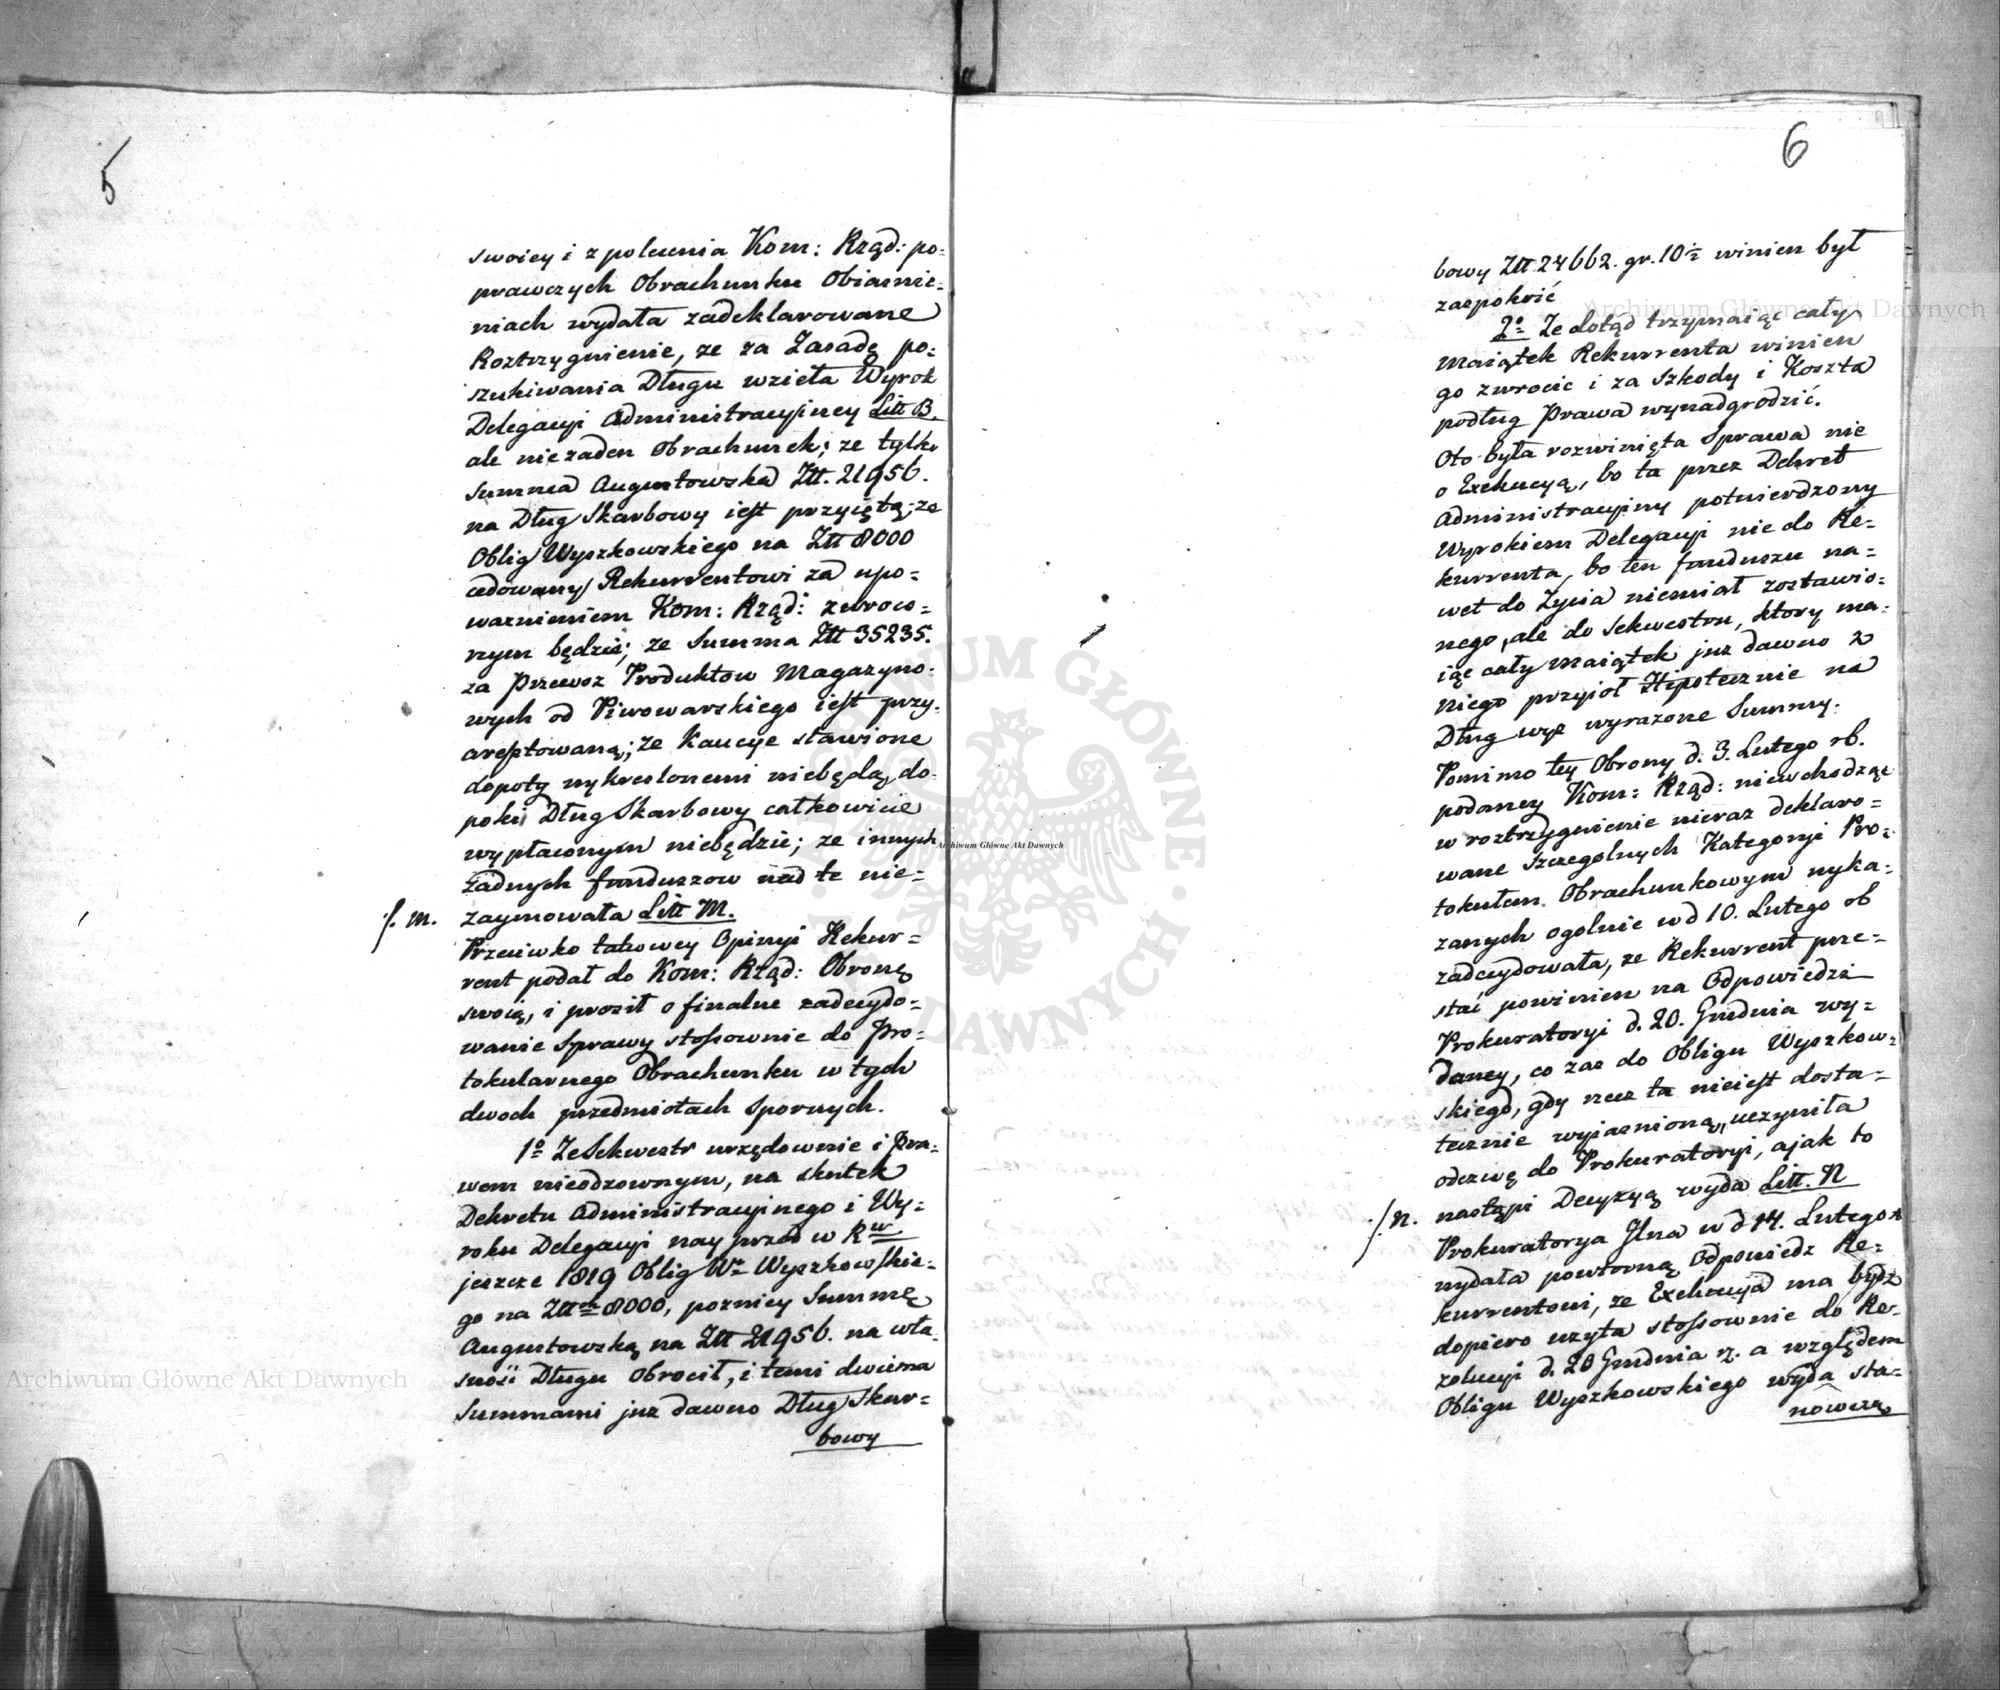 5
swoiey i z polecenia Kom: Rząd: po=
prawczych Obrachunku Obiasnie=
niach wydała zadeklarowane
Roztrzygnienie, ze za Zasadę po=
szukiwania Długu wzieła Wyrok
Delegacyi Administracyiney Litt B.
ale nie zaden Obrachunek; ze tylko
Summa Augustowska Ztt. 21956.
na Dług Skarbowy iest przyiętą; ze
Oblig Wyszkowskiego na Ztt 8000
cedowany Rekurrentowi za upo=
waznieniem Kom: Rząd: zwroco=
nym będzie; ze Summa Ztt 35235.
za Przewoz Produktow Magazyno=
wych od Piwowarskiego iest przy=
areptowaną; ze Kaucye stawione
dopoty wykreslonemi niebędą, do=
poki Dług Skarbowy całkowicie
wypłaconym niebędzie; ze innych
żadnych funduszow nad te nie=
f. M. zaymowała Litt M.
Przeciwko takowey Opinyi Rekur=
rent podał do Kom: Rząd: Obronę
swoią, i prosił o finalne zadecydo=
wanie Sprawy stosownie do Pro=
tokularnego Obrachunku w tych
dwoch przedmiotach spornych.
1o Ze Sekwestr urzędownie i Pra=
wem nieodzownym, na skutek
Dekretu Administracyinego i Wy=
roku Delegacyi nay przod w Rw
jeszcze 1819 Oblig Wo Wyszkowskie=
go na Ztt 8000, pozniey Summę
Augustowską na Ztt 21956. na wła=
sność Długu obrocił, i temi dwiema
Summami juz dawno Dług Skar=
bowy
6
bowy Ztt 24662. gr. 10½ winien był
zaspokoić
2o Ze dotąd trzymaiąc cały
Maiątek Rekurrenta winien
go zwrocic i za Szkody i Koszta
podług Prawa wynadgrodzić.
Oto była rozwinięta Sprawa nie
o Exekucyą, bo ta przez Dekret
Administracyiny potwierdzony
Wyrokiem Delegacyi nie do Re=
kurrenta, bo ten funduszu na=
wet do Zycia niemiał zostawio=
nego, ale do Sekwestru, ktory ma=
iąc cały maiątek juz dawno z
niego przyioł Hipotecznie na
Dług wyz wyrazone Summy.
Pomimo tey Obrony d. 3. Lutego rb.
podaney Kom: Rząd: niewchodząc
w roztrzygnienie nieraz deklaro=
wane szczegolnych Kategoryi Pro=
tokułem Obrachunkowym wyka=
zanych ogolnie w d 10. Lutego rb
zadecydowała, ze Rekurrent prze=
stać powinien na Odpowiedzi
Prokuratoryi d. 20. Grudnia wy=
daney, co zas do Obligu Wyszkow=
skiego, gdy rzecz ta nieiest dosta=
tecznie wyiasnioną, uczyniła
odezwę do Prokuratoryi, a jak to
nastąpi Decyzyą wyda Litt. N
f. N. Prokuratorya Jlna w d 14. Lutego
wydała powtorną Odpowiedz Re=
kurrentowi, ze Exekucya ma bydz
dopiero uzyta stosownie do Re=
zolucyi d. 20 Grudnia rz. a względem
Obligu Wyszkowskiego wyda sta=
nowczą
Archiwum Główne Akt Dawnych
Archiwum Główne Akt Dawnych
Archiwum Główne Akt Dawnych
ARCHIWUM GŁÓWNE AKT DAWNYCH